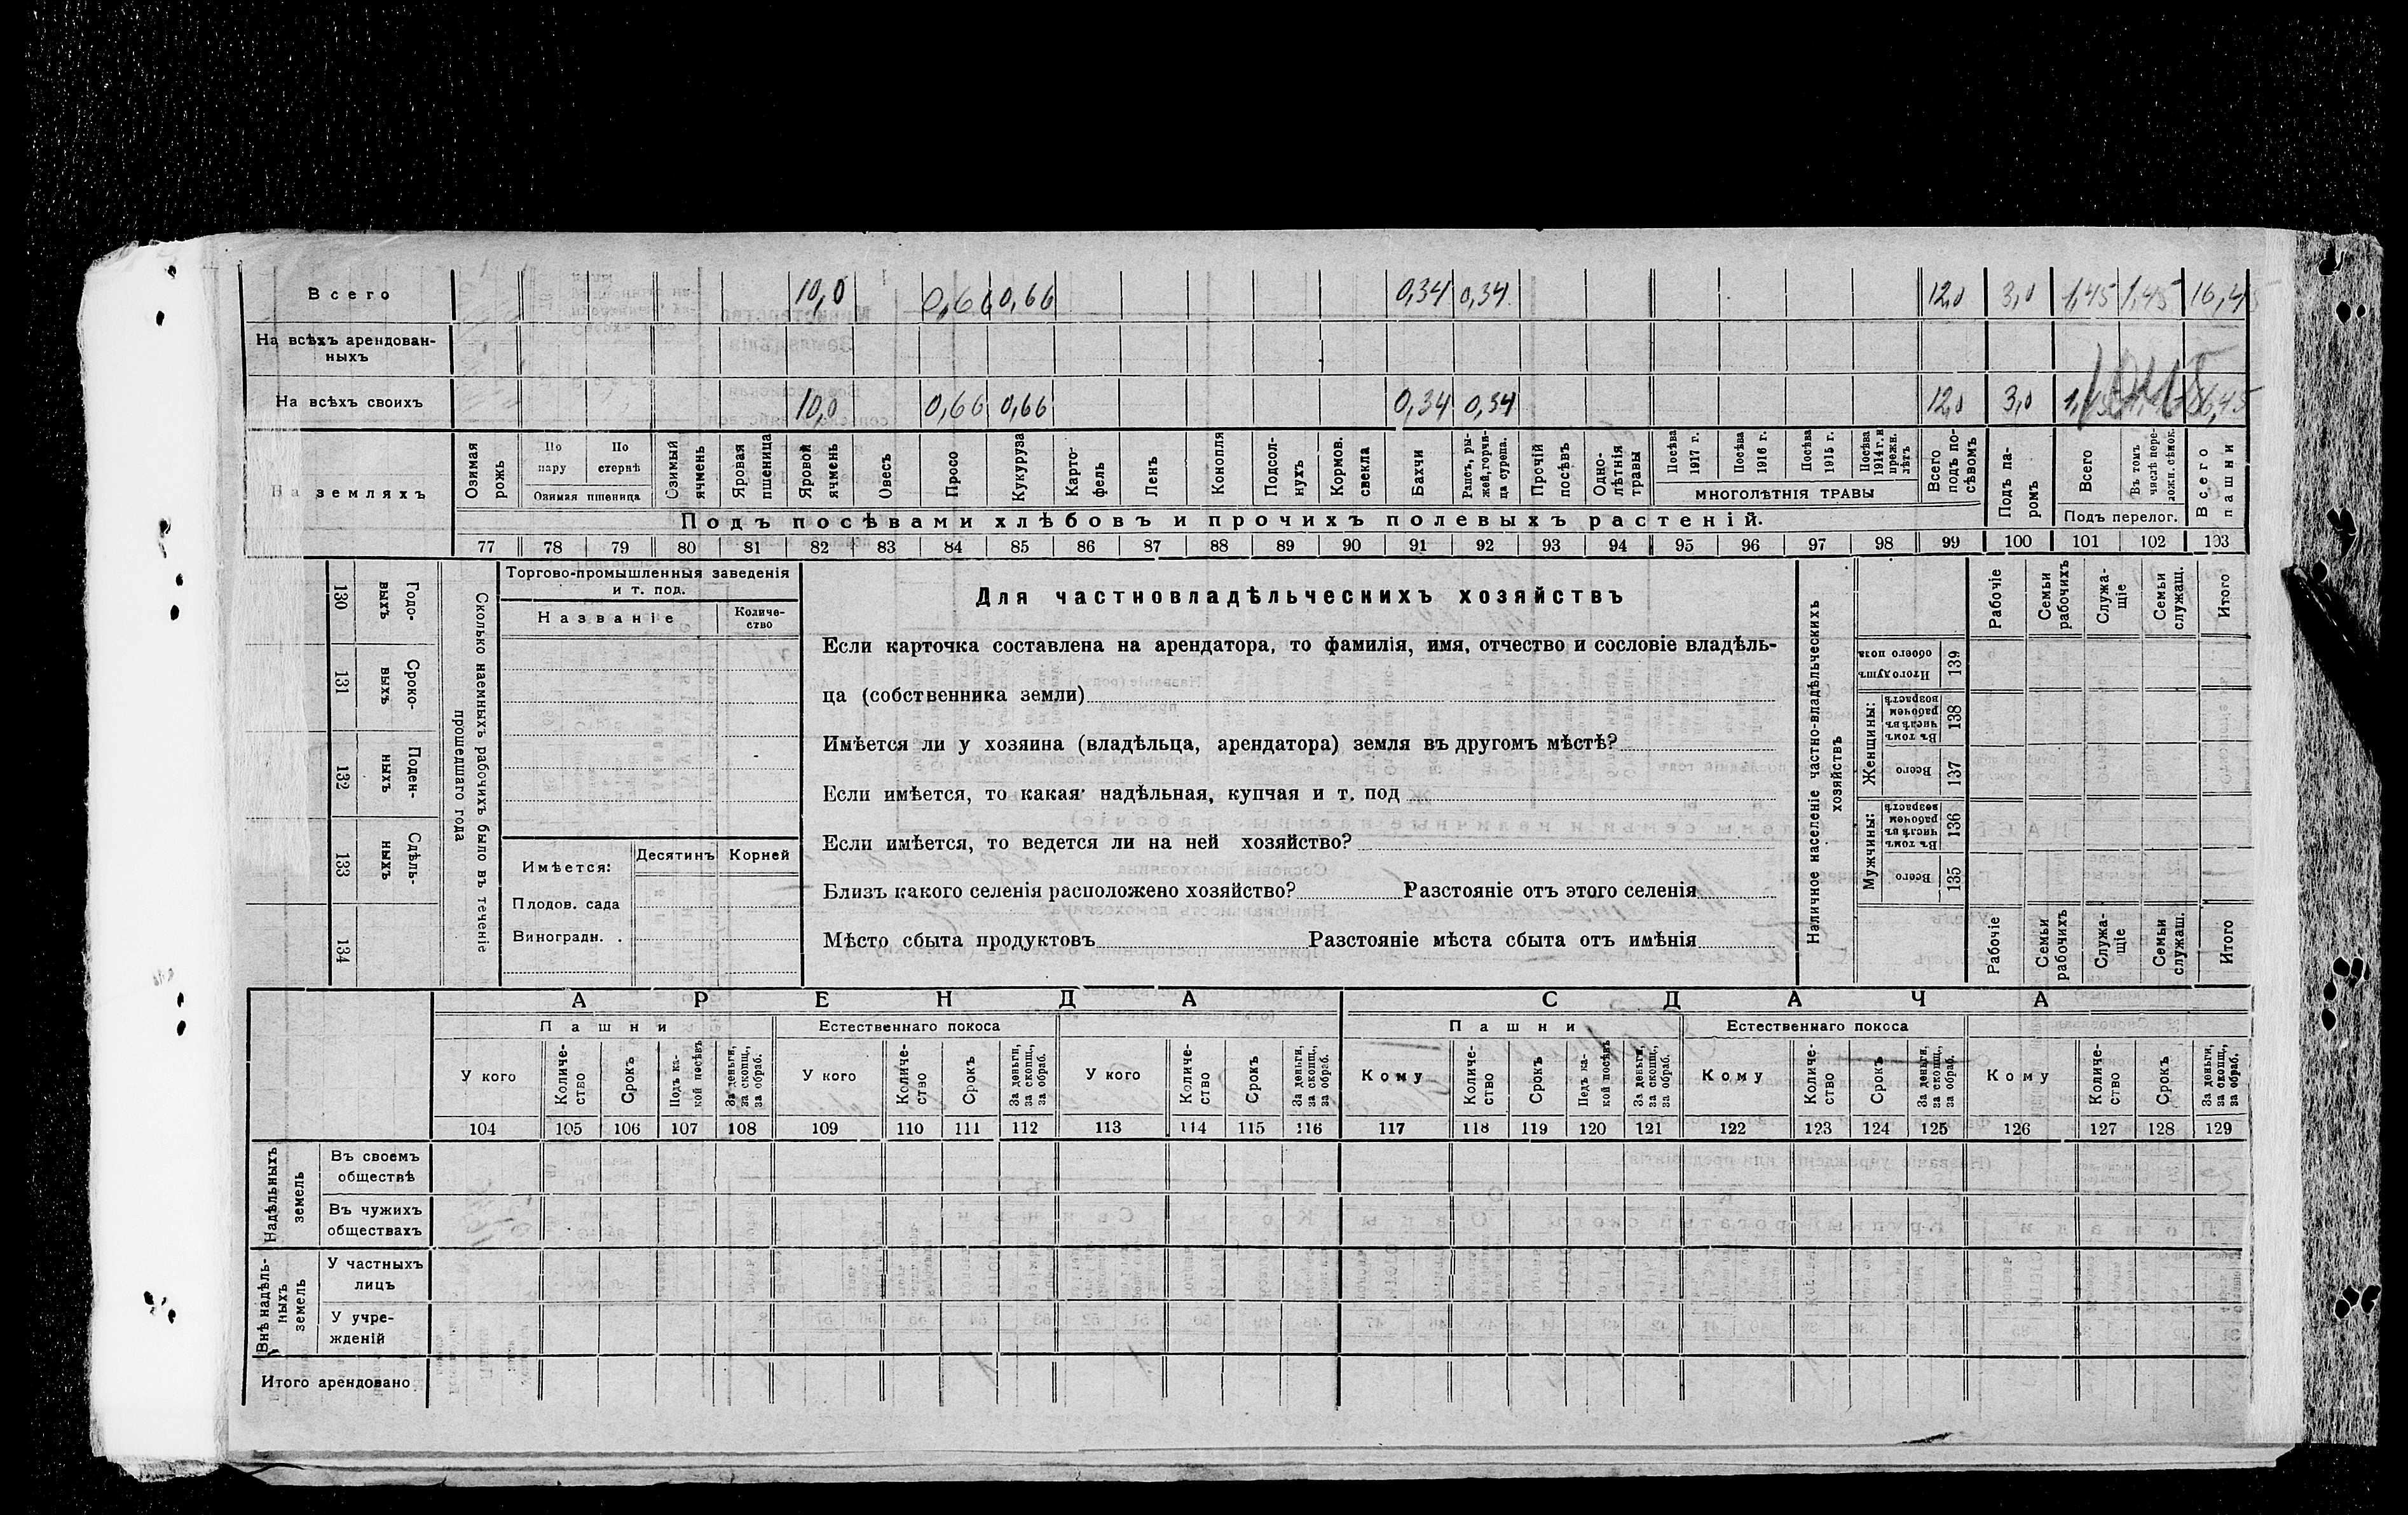 Всего 10,0 0,66 0,66 0,34 0,34 12,0 3,0 1,45 1,45 16,45
На всѣхъ арендован-
ныхъ
На всѣхъ своихъ 10,0 0,66 0,66 0,34 0,34 12,0 3,0
На земляхъ
Озимая рожь
По пару
По стернѣ
Озимая пшеница
Озимый ячмень
Яровая пшеница
Яровой ячмень
Овесъ
Просо
Кукуруза
Карто-
фель
Ленъ
Конопля
Подсол-
нухъ
Кормов. свекла
Бахчи
Рапсъ, ры-
жей, горчи-
ца сурепа.
Прочій посѣвъ
Одно-
лѣтнія травы
Посѣва 1917 г.
Посѣва 1916 г.
Посѣва 1915 г.
Посѣва 1914 г. и прежн. лѣтъ
МНОГОЛѢТНІЯ ТРАВЫ
Всего подъ по-
сѣвомъ
Подъ па-
ромъ
Всего
Въ томъ числѣ пере-
ложн. сѣнок.
Подъ перелог.
Всего пашни
Подъ посѣвами хлѣбовъ и прочихъ полевыхъ растеній.
77 78 79 80 81 82 83 84 85 86 87 88 89 90 91 92 93 94 95 96 97 98 99 100 101 102 103
130 Годо-
выхъ
131 Сроко-
выхъ
132 Поден-
ныхъ
133 Сдѣль-
ныхъ
134
Сколько наемныхъ рабочихъ было въ теченіе
прошедшаго года
Торгово-промышленныя заведенія
и т. под.
Названіе
Количе-
ство
Имѣется: Десятинъ Корней
Плодов. сада
Виноградн. .
Для частновладѣльческихъ хозяйствъ
Если карточка составлена на арендатора, то фамилія, имя, отчество и сословіе владѣль-
ца (собственника земли)
Имѣется ли у хозяина (владѣльца, арендатора) земля въ другомъ мѣстѣ?
Если имѣется, то какая надѣльная, купчая и т. под
Если имѣется, то ведется ли на ней хозяйство?
Близъ какого селенія расположено хозяйство? Разстояніе отъ этого селенія
Мѣсто сбыта продуктовъ Разстояніе мѣста сбыта отъ имѣнія
Наличное населеніе частно-владѣльческихъ
хозяйствъ
Рабочіе
Семьи рабочихъ
Служа-
щіе
Семьи служащ.
Итого
Итого душъ обоего пола 139
Женщины:
Въ томъ числѣ въ рабочемъ возрастѣ 138
Всего 137
Мужчины:
Въ томъ числѣ въ рабочемъ возрастѣ 136
Всего 135
Рабочіе
Семьи рабочихъ
Служа-
щіе
Семьи служащ.
Итого
АРЕНДА СДАЧА
Пашни Естественнаго покоса Пашни Естественнаго покоса
У кого
Количе-
ство
Срокъ
Подъ ка-
кой посѣвъ
За деньги, за скопщ., за обраб.
У кого
Количе-
ство
Срокъ
За деньги, за скопщ., за обраб.
У кого
Количе-
ство
Срокъ
За деньги, за скопщ., за обраб.
Кому
Количе-
ство
Срокъ
Подъ ка-
кой посѣвъ
За деньги, за скопщ., за обраб.
Кому
Количе-
ство
Срокъ
За деньги, за скопщ., за обраб.
Кому
Количе-
ство
Срокъ
За деньги, за скопщ., за обраб.
104 105 106 107 108 109 110 111 112 113 114 115 116 117 118 119 120 121 122 123 124 125 126 127 128 129
Надѣльныхъ земель
Въ своемъ
обществѣ
Въ чужихъ
обществахъ
Внѣ надѣль-
ныхъ земель
У частныхъ
лицъ
У учре-
жденій
Итого арендовано